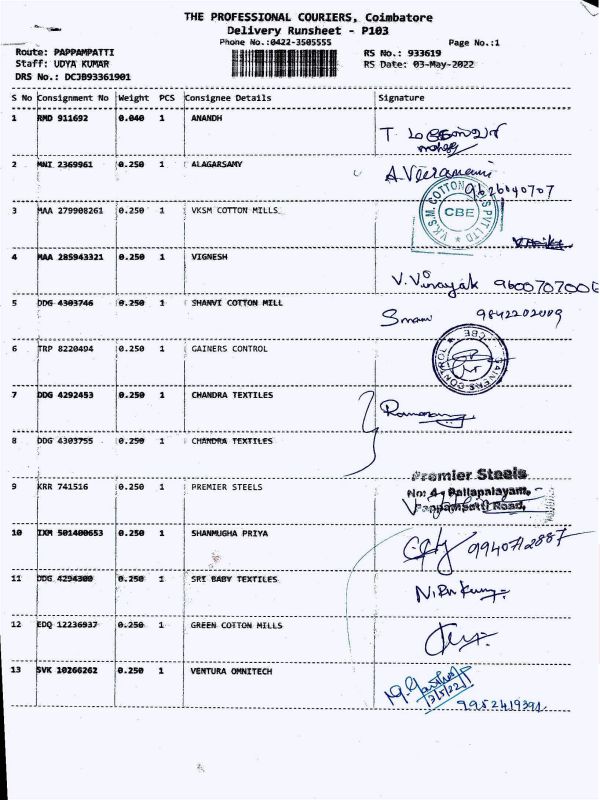 THE PROFESSIONAL COURIERS, Coimbatore
Delivery Runsheet - P103
Phone No.:0422-3505555 Page No.:1
Route: PAPPAMPATTI RS No.: 933619
Staff: UDYA KUMAR RS Date: 03-May-2022
DRS No.: DCJB93361901
S No Consignment No Weight PCS Consignee Details Signature
1 RMD 911692 0.040 1 ANANDH T.
2 MNI 2369961 0.250 1 ALAGARSAMY A. Veeramani
9626040707
3 MAA 279908261 0.250 1 VKSM COTTON MILLS V.K.S.M. COTTON PVT LTD CBE
4 MAA 285943321 0.250 1 VIGNESH V. Vinayak 960070700
5 DDG 4303746 0.250 1 SHANVI COTTON MILL 9842202009
6 TRP 8220494 0.250 1 GAINERS CONTROL GAINERS CONTROL CBE
7 DDG 4292453 0.250 1 CHANDRA TEXTILES
8 DDG 4303755 0.250 1 CHANDRA TEXTILES
9 KRR 741516 0.250 1 PREMIER STEELS Premier Steels
No: 4, Pallapalayam,
Pappampatti Road,
10 IXM 501400653 0.250 1 SHANMUGHA PRIYA 9940712887
11 DDG 4294300 0.250 1 SRI BABY TEXTILES
12 EDQ 12236937 0.250 1 GREEN COTTON MILLS
13 SVK 10266262 0.250 1 VENTURA OMNITECH
3/5/22
9952419391